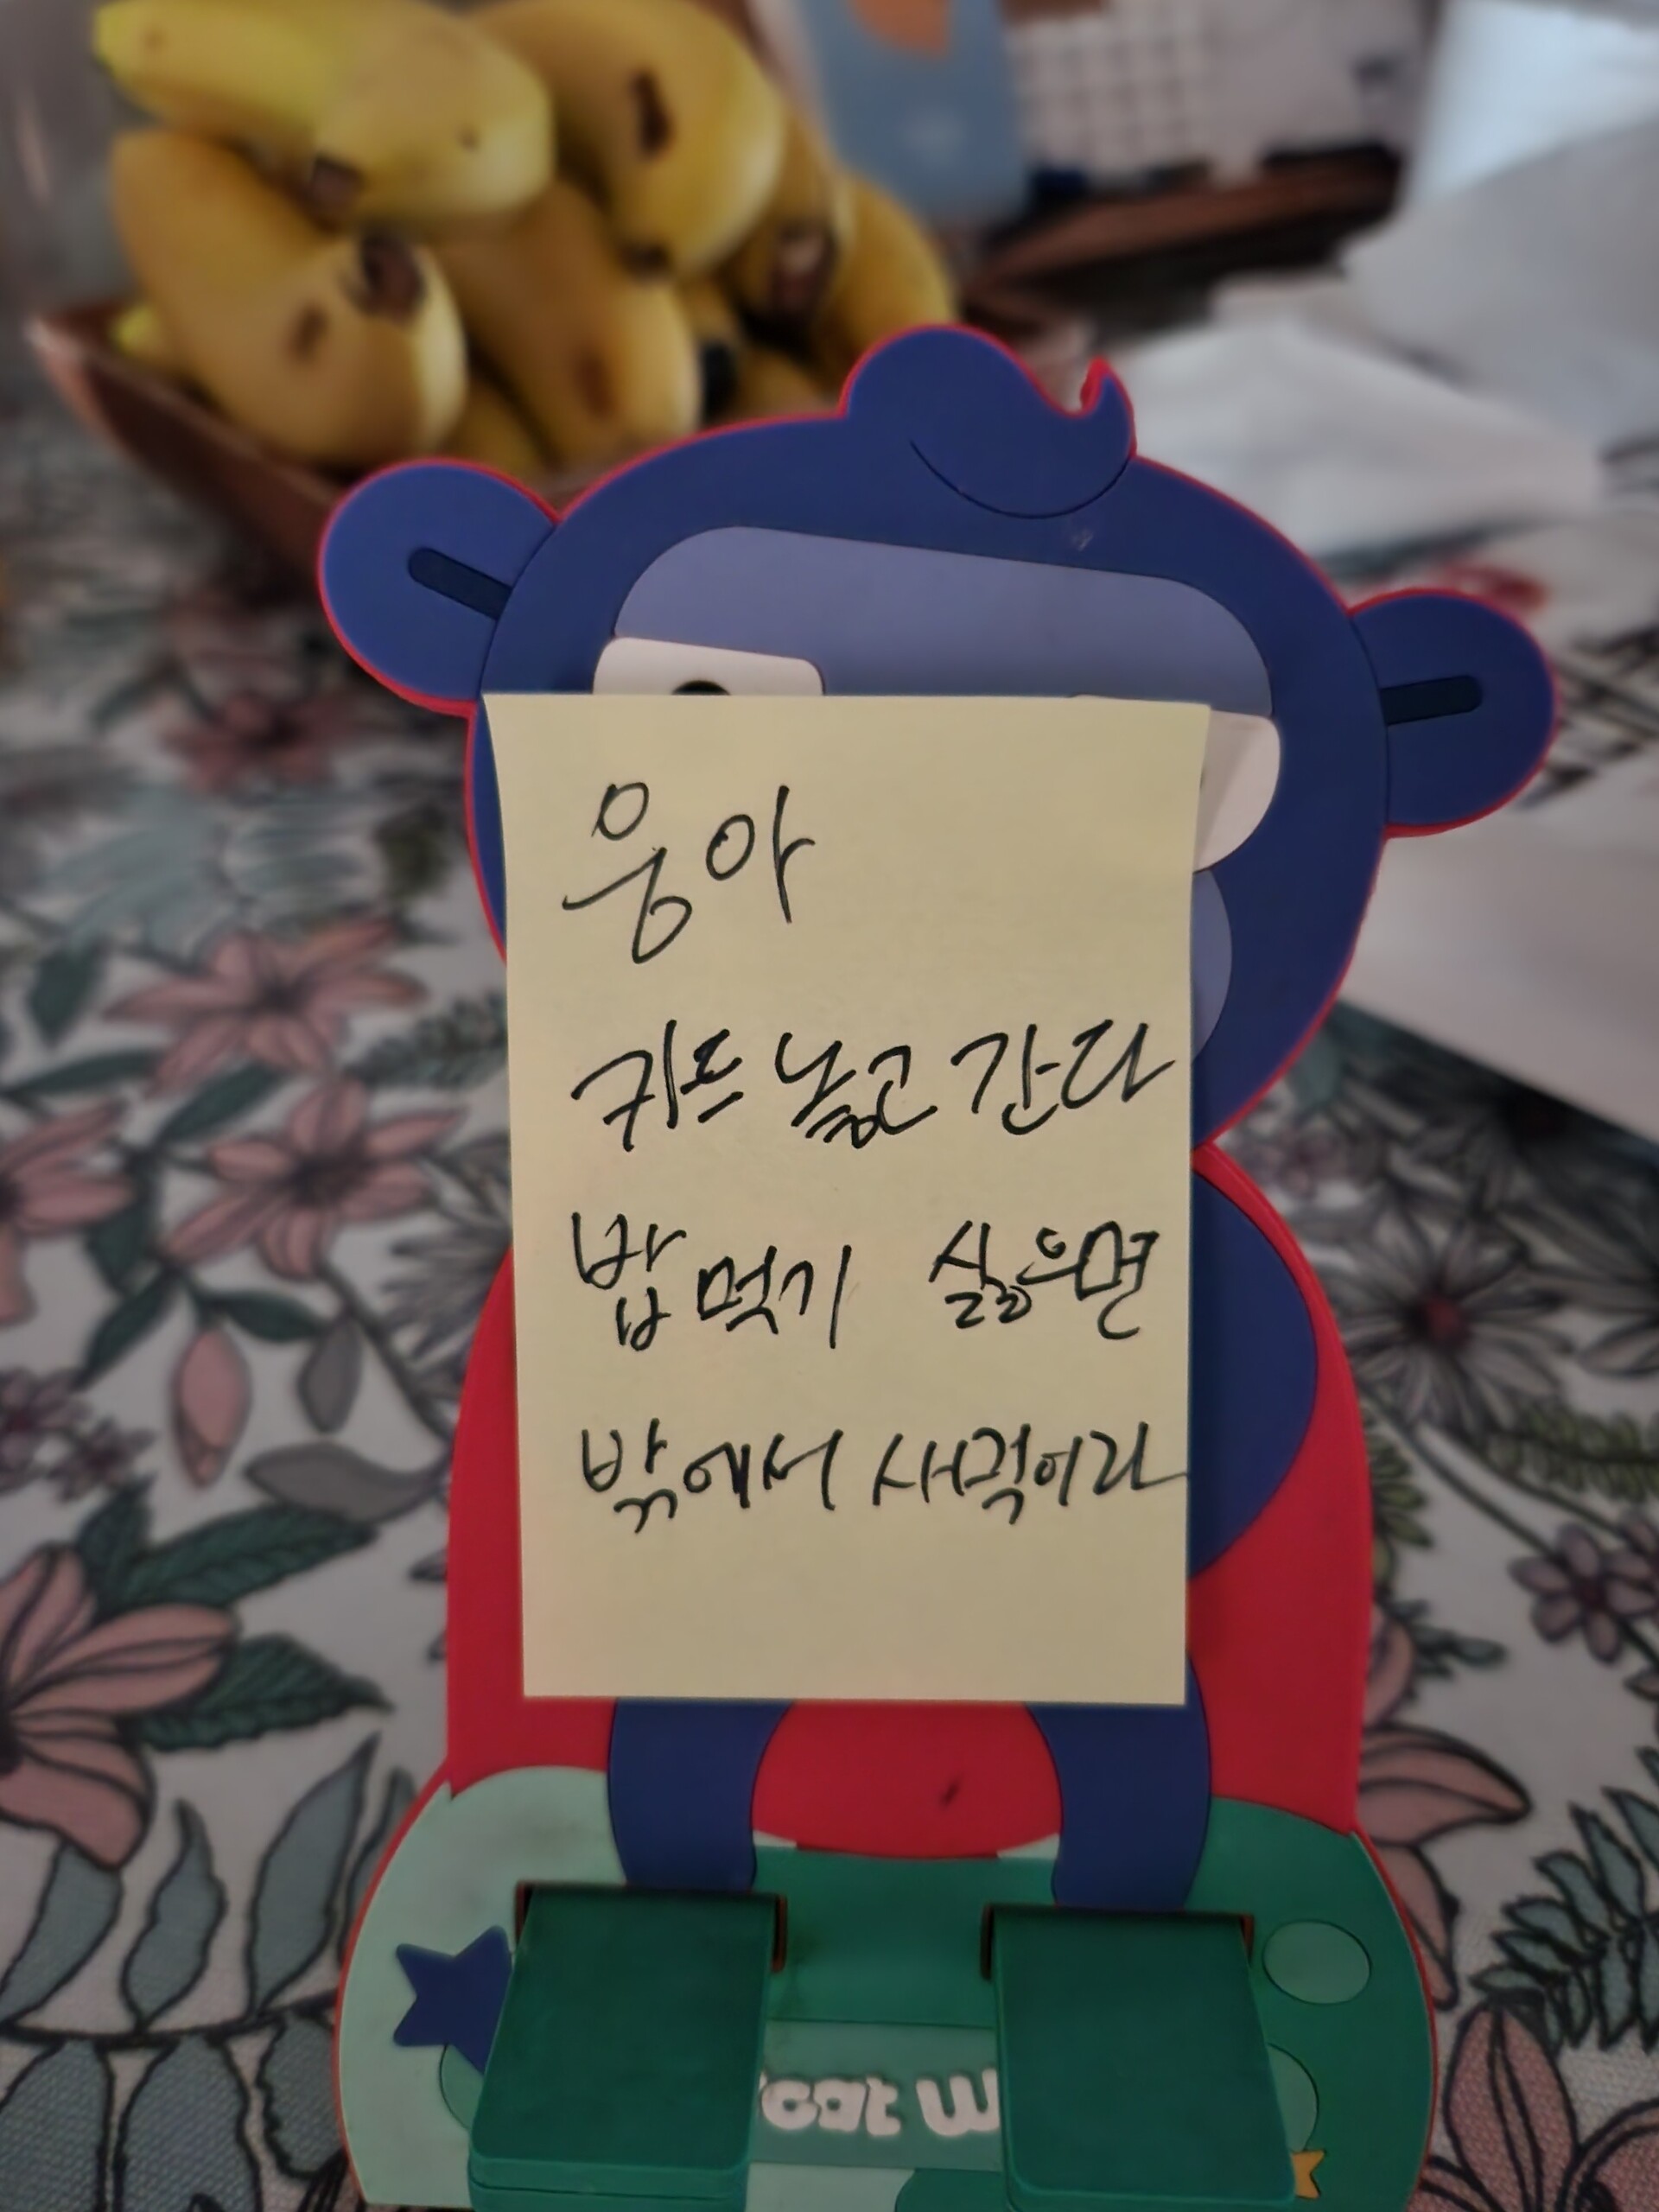 웅아
카드 놓고 간다
밥 먹기 싫으면
밖에서 사먹어라
eat W